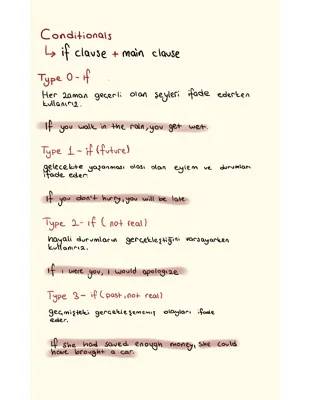 Conditionals
↳ if clause + main clause
Type 0 - if
Her zaman geçerli olan şeyleri ifade ederken
kullanırız.
If you walk in the rain, you get wet.
Type 1 - if (future)
gelecekte yaşanması olası olan eylem ve durumları
ifade eder.
If you don't hurry, you will be late
Type 2 - if ( not real)
hayali durumların gerçekleştiğini varsayarken
kullanırız.
If i were you, I would apologize
Type 3 - if (past, not real)
geçmişteki gerçekleşmemiş olayları ifade
eder.
If she had saved enough money, she could
have brought a car.